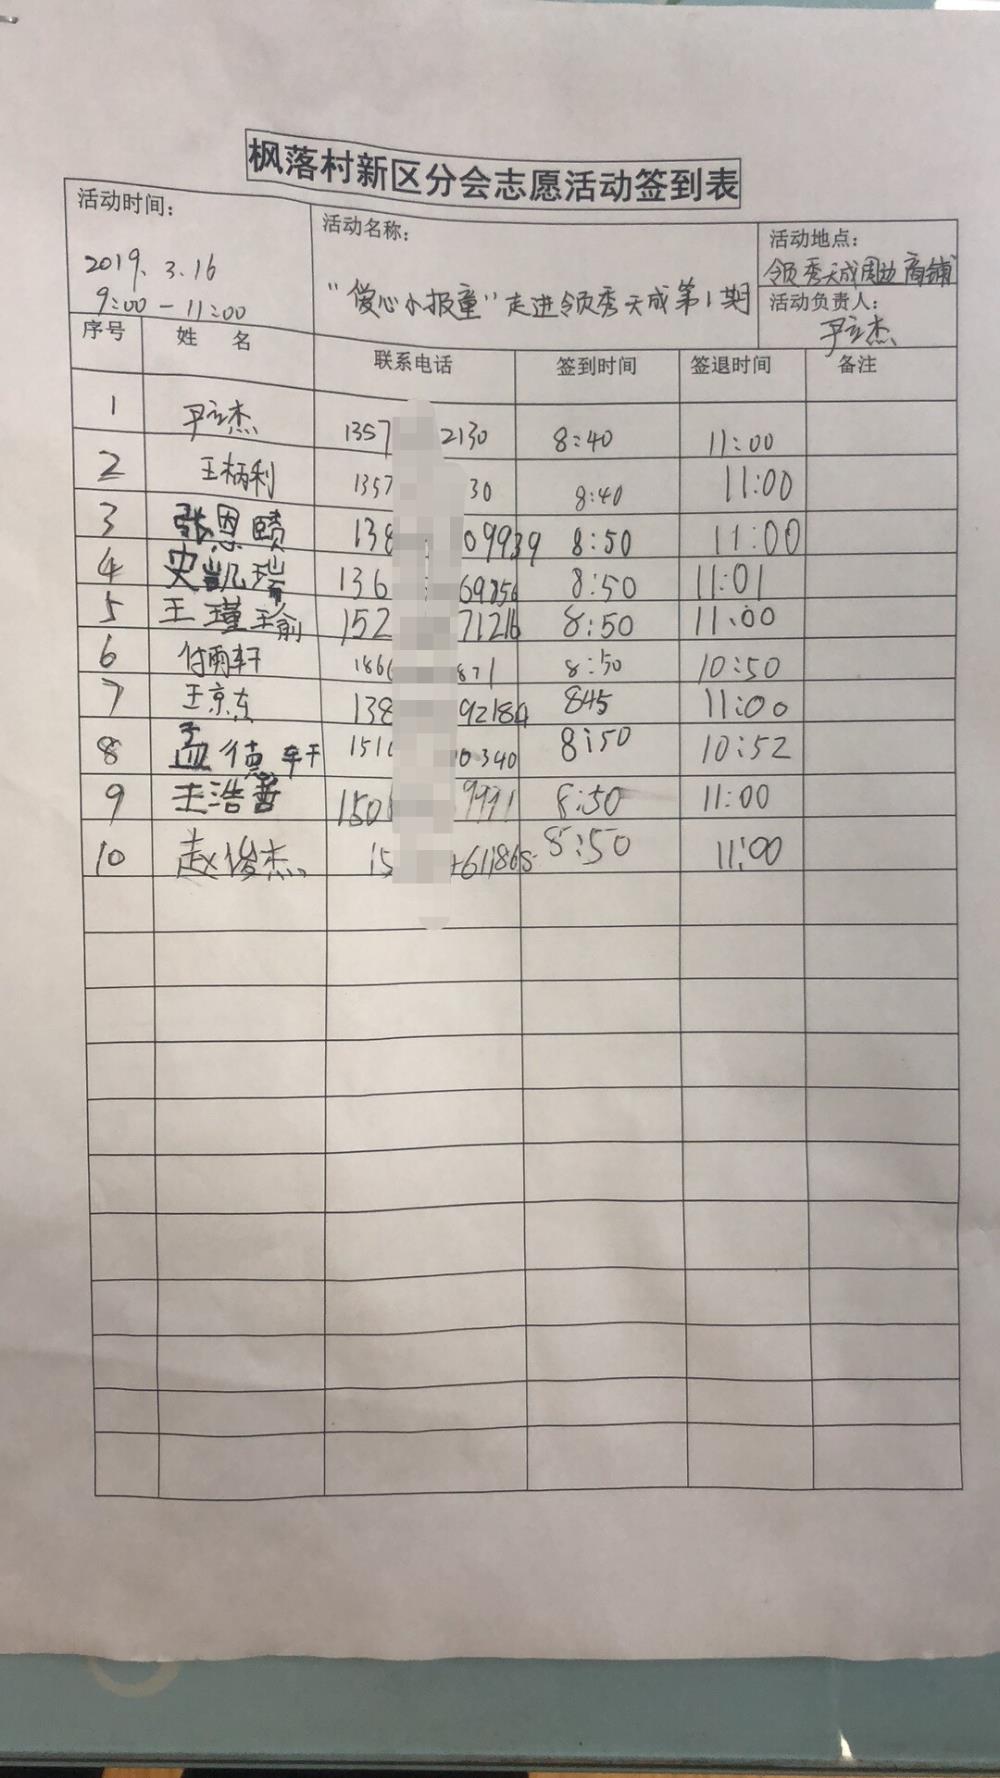 枫落村新区分会志愿活动签到表
活动时间：
2019.3.16
9:00-11:00
活动名称：
"爱心小报童"走进领秀天成第1期
活动地点：
领秀天成周边商铺
活动负责人：
尹立杰
序号 姓名 联系电话 签到时间 签退时间 备注
1 尹立杰 1357 2130 8:40 11:00
2 王柄利 1357 30 8:40 11:00
3 张恩赜 138 09939 8:50 11:00
4 史凯瑞 136 69856 8:50 11:01
5 王瑾瑜 152 71216 8:50 11:00
6 付雨轩 186 871 8:50 10:50
7 王京东 138 92184 845 11:00
8 孟德轩 151 10340 8:50 10:52
9 王浩善 150 9991 8:50 11:00
10 赵俊杰 15 61186 8:50 11:00